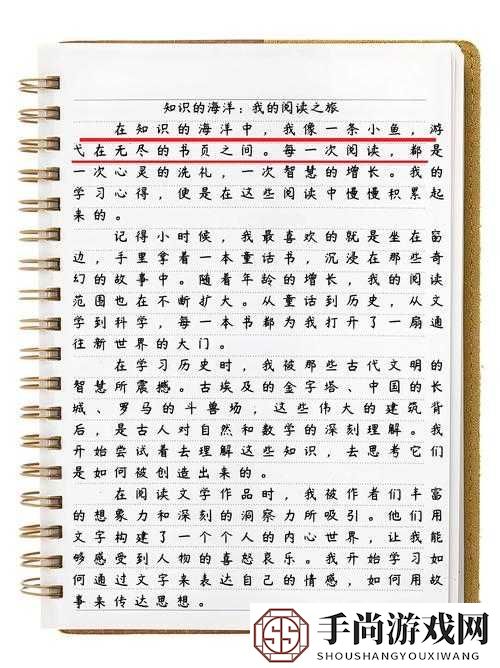 知识的海洋：我的阅读之旅
在知识的海洋中，我像一条小鱼，游
弋在无尽的书页之间。每一次阅读，都是
一次心灵的洗礼，一次智慧的增长。我的
学习心得，便是在这些阅读中慢慢积累起
来的。
记得小时候，我最喜欢的就是坐在窗
边，手里拿着一本童话书，沉浸在那些奇
幻的故事中。随着年龄的增长，我的阅读
范围也在不断扩大。从童话到历史，从文
学到科学，每一本书都为我打开了一扇通
往新世界的大门。
在学习历史时，我被那些古代文明的
智慧所震撼。古埃及的金字塔、中国的长
城、罗马的斗兽场，这些伟大的建筑背
后，是古人对自然和数学的深刻理解。我
开始尝试着去理解这些知识，去思考它们
是如何被创造出来的。
在阅读文学作品时，我被作者们丰富
的想象力和深刻的洞察力所吸引。他们用
文字构建了一个个人的内心世界，让我能
够感受到人物的喜怒哀乐。我开始学习如
何通过文字来表达自己的情感，如何用故
事来传达思想。
手尚游戏网
SHOUSHANGYOUXIWANG